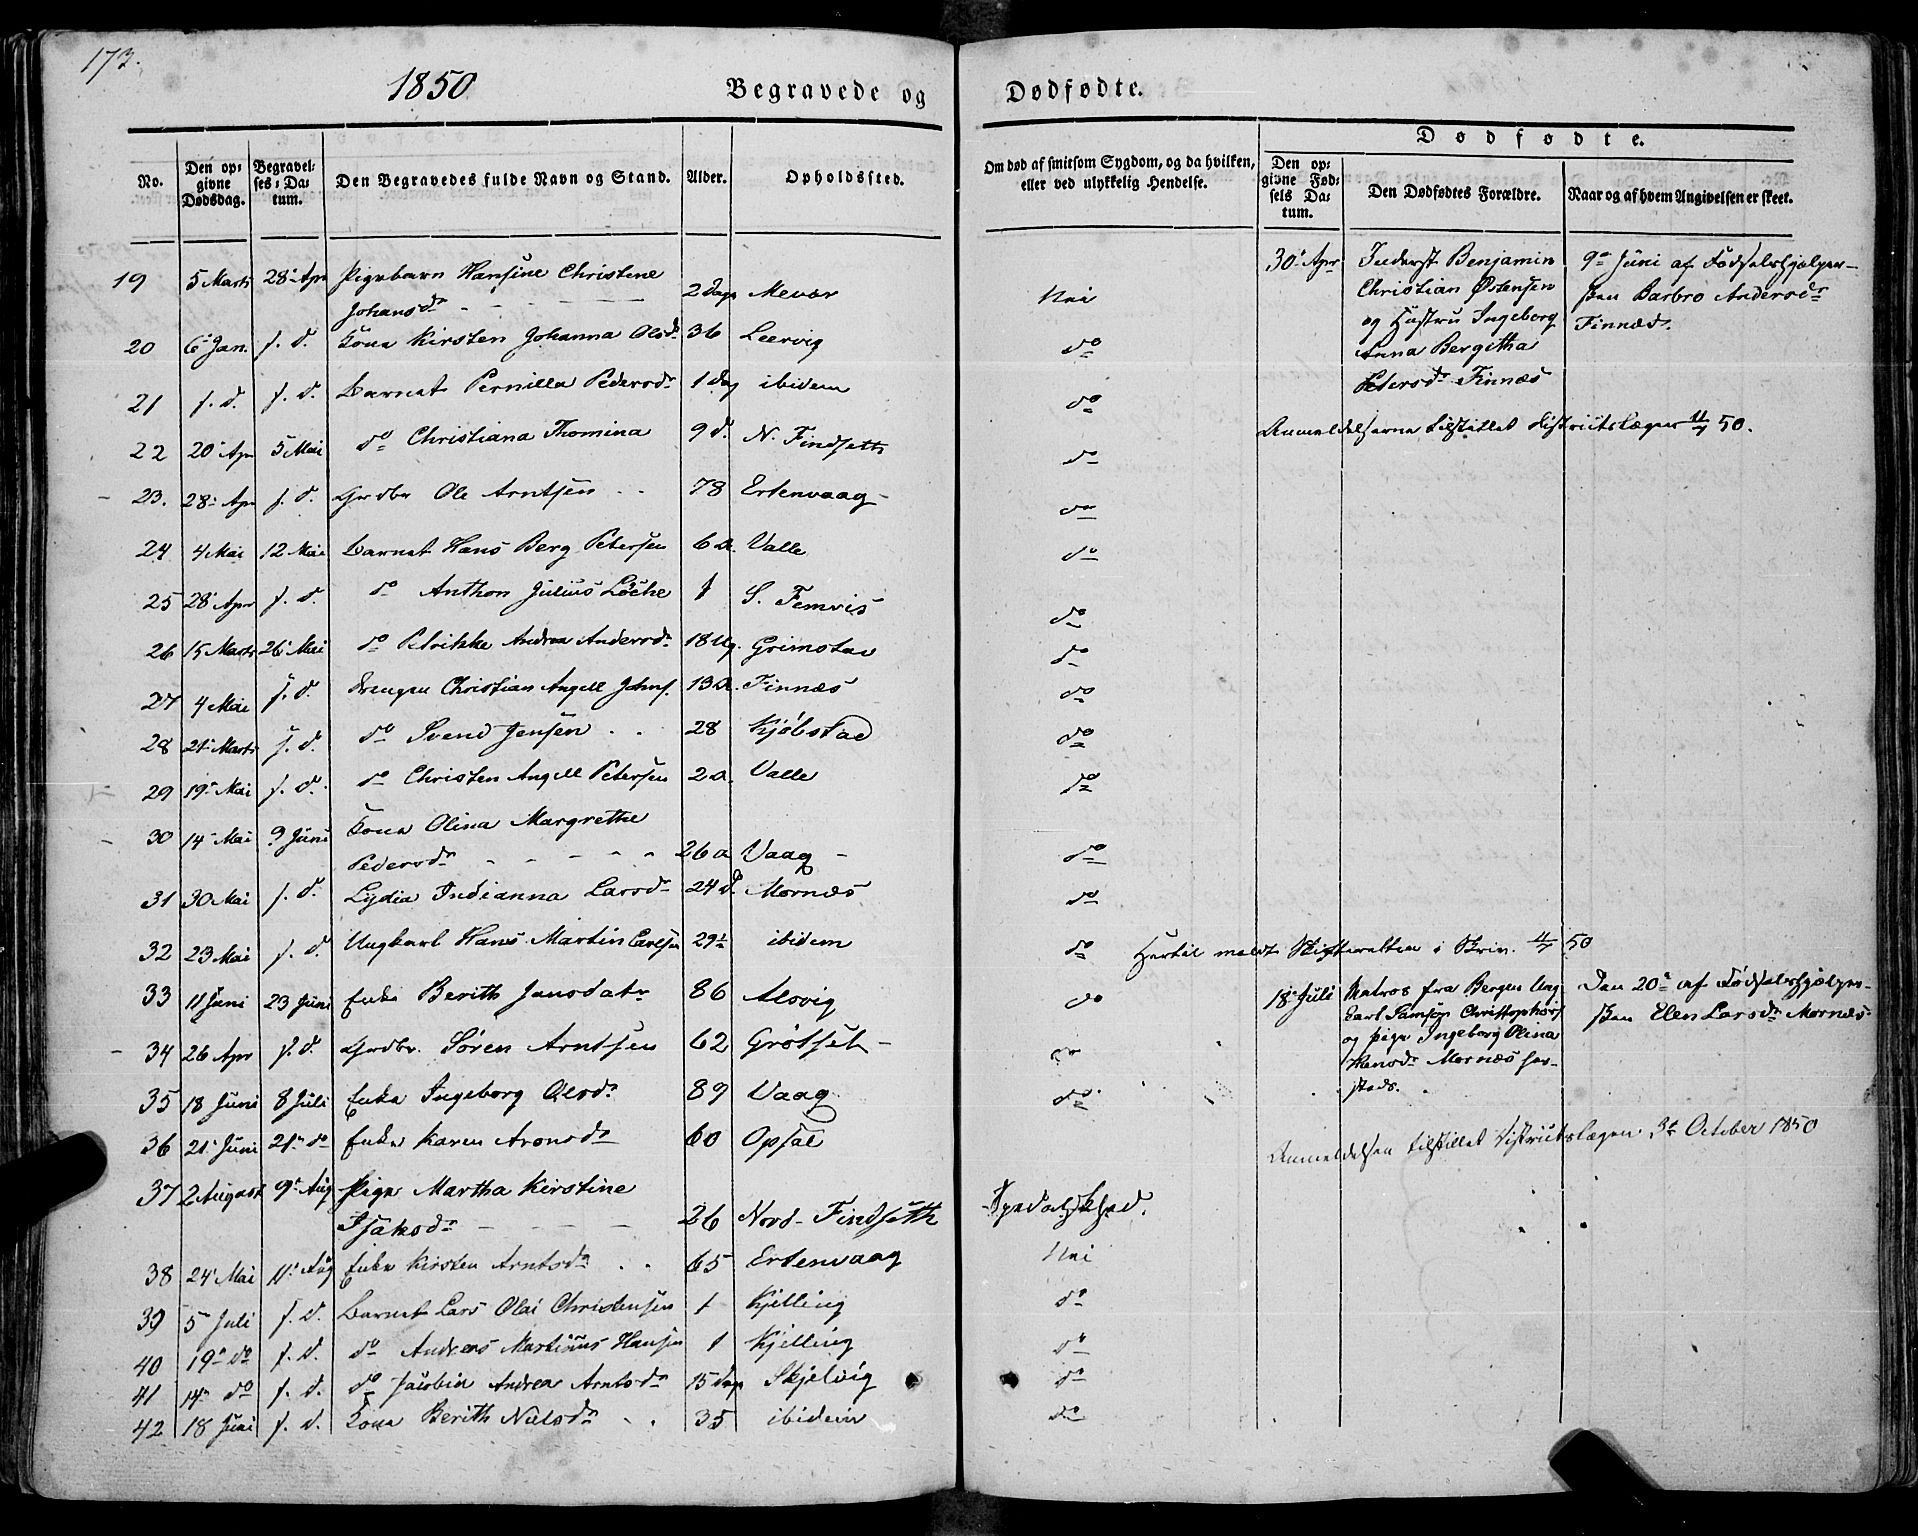 173.
1850
Begravede og Dødfødte.
No. | Den opgivne Dødsdag. | Begravelses-Datum. | Den Begravedes fulde Navn og Stand. | Alder. | Opholdssted. | Om død af smitsom Sygdom, og da hvilken, eller ved ulykkelig Hendelse.
Dødfødte.
Den opgivne Fødsels Datum. | Den Dødfødtes Forældre. | Naar og af hvem Angivelsen er skeet.
19 | 5 Marts | 28 Apr | Pigebarn Hansine Christene
Johansd. | 2 Dage | Mevær | Nei
20 | 6 Jan. | s. d. | Kone Kirsten Johanna Olsd | 36 | Leervig | do
21 | s. d. | s. d. | Barnet Pernilla Pedersd. | 1 dag | ibidem | do
22 | 20 Apr | 5 Mai | do Christiana Thomina | 9 d. | N. Findseth | do
23. | 28 Apr | s. d. | Grdbr Ole Arntsen | 78 | Ertenvaag | do
24 | 4 Mai | 12 Mai | Barnet Hans Berg Petersen | 6 | Valle | do
25 | 28 Apr | s. d. | do Anthon Julius Løche | 1 | S. Femris | do
26 | 15 Marts | 26 Mai | do Petrikke Andrea Andersd. | 18 Ug. | Grimstad | do
27 | 4 Mai | s. d. | Drengen Christian Angell Johns. | 13 | Finnæs | do
28 | 21 Marts | s. d. | do Svend Jensen | 28 | Kjøbstad | do
29 | 19 Mai | s. d. | do Christen Angell Petersen | 2 | Valle | do
30 | 14 Mai | 9 Juni | Kone Olina Margrethe
Pedersd. | 26 a | Vaag | do
31 | 30 Mai | s. d. | Lydia Indianna Larsd. | 24 d. | Mornæs | do
32 | 23 Mai | s. d. | Ungkarl Hans Martin Carlsen | 29 | ibidem | do
33 | 11 Juni | 23 Juni | Enke Berith Jensdatr | 86 | Alsvig | do
34 | 26 Apr | s. d. | Grdbr. Søren Arntsen | 62 | Grötset | do
35 | 18 Juni | 8 Juli | Enke Ingeborg Olsd. | 89 | Vaag | do
36 | 21 Juni | 21 do | Enke Karen Aronsd. | 60 | Opsal
37 | 2 August | 9 Aug | Pige Martha Kirstine
Isaksd. | 26 | Nord-Findseth | Spedalskhed.
38 | 24 Mai | 11 Aug | Enke Kirsten Arntsd. | 65 | Ertenvaag | Nei
39 | 5 Juli | s. d. | Barnet Lars Olai Christensen | 1 | Kjelling | do
40 | 19 do | s. d. | do Anders Martinus Hansen | 1 | Kjelling | do
41 | 14 do | s. d. | do Jacobia Andrea Arntsd. | 15 dage | Skjelvig | do
42 | 18 Juni | s. d. | Kone Berith Nielsd. | 35 | ibidem | do
30 Apr | Inderst Benjamin
Christian Østensen
og Hustru Ingeborg
Anna Bergitha
Petersd. Finnæs | 9 Juni af Fødselshjelper-
sken Barbro Andersd.
Finnæs.
Anmeldelserne tilstillet Districtslægen 50.
Hertil meldt Skifteretten i Skriv. 50
18 Juli | Matros fra Bergen Ung
karl Samson Christophers
og Pige Ingeborg Olina
Hansd. Mornæs her-
steds. | Den 20 af Fødselshjelper-
sken Elen Larsd. Mornæs
Anmeldelsen tilstillet Districtslægen 3 October 1850